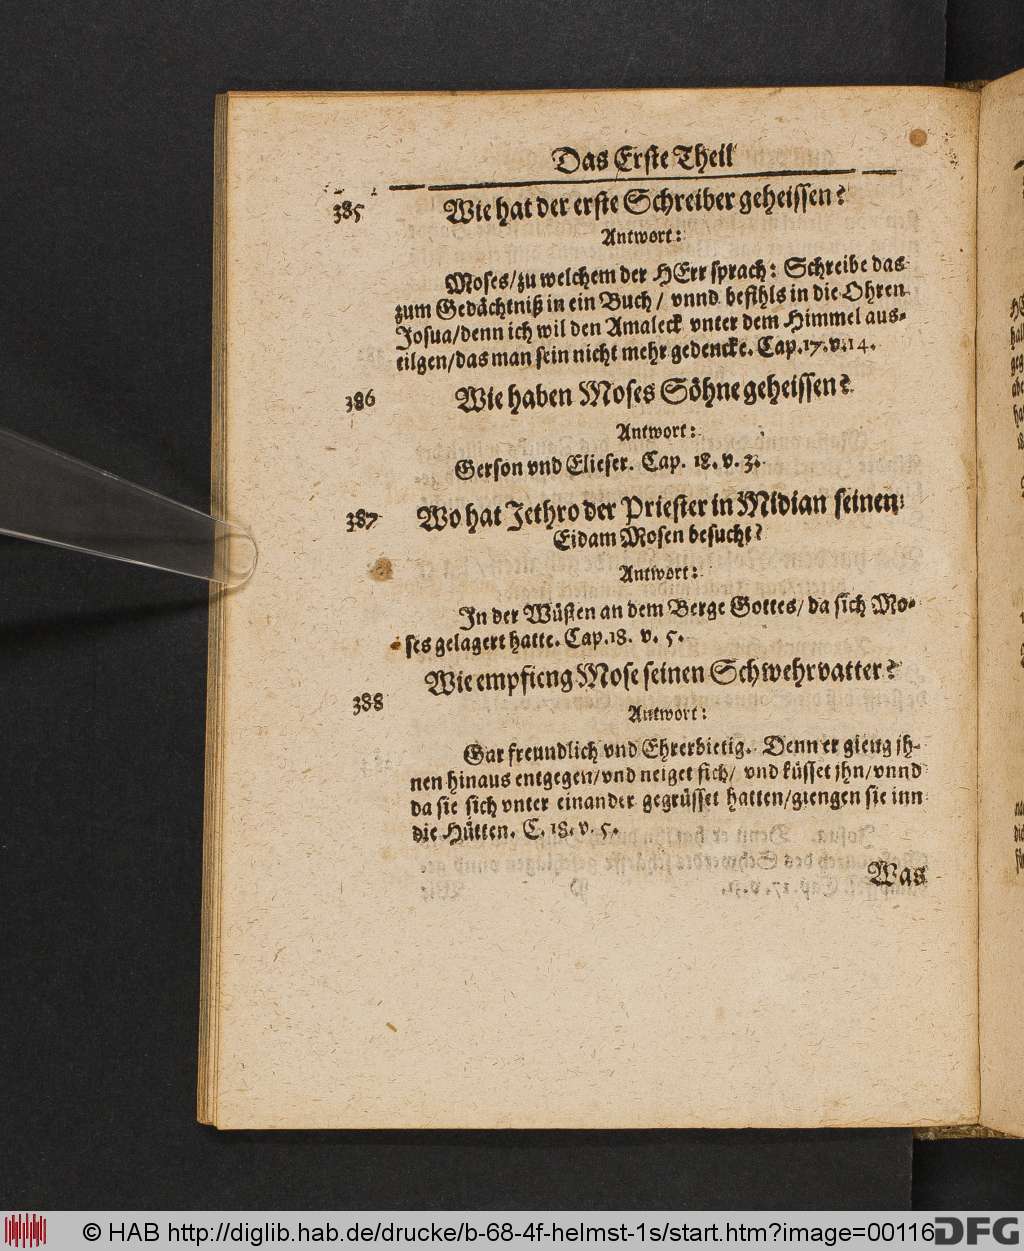 Das Erste Theil
385 Wie hat der erste Schreiber geheissen?
Antwort:
Moses/zu welchem der HErr sprach: Schreibe das
zum Gedächtniß in ein Buch/ vnnd befihls in die Ohren
Josua/denn ich wil den Amaleck vnter dem Himmel aus-
tilgen/das man sein nicht mehr gedencke. Cap.17.v.14.
386 Wie haben Moses Söhne geheissen?
Antwort:
Gerson vnd Elieser. Cap. 18. v. 3.
387 Wo hat Jethro der Priester in Midian seinen
Eidam Mosen besucht?
Antwort:
In der Wüsten an dem Berge Gottes/ da sich Mo-
ses gelagert hatte. Cap.18. v. 5.
388 Wie empfieng Mose seinen Schwehrvatter?
Antwort:
Gar freundlich vnd Ehrerbietig. Denn er gieng jh-
nen hinaus entgegen/vnd neiget sich/ vnd küsset jhn/vnnd
da sie sich vnter einander gegrüsset hatten/giengen sie inn
die Hütten. C. 18. v. 5.
Was
© HAB http://diglib.hab.de/drucke/b-68-4f-helmst-1s/start.htm?image=00116
DFG